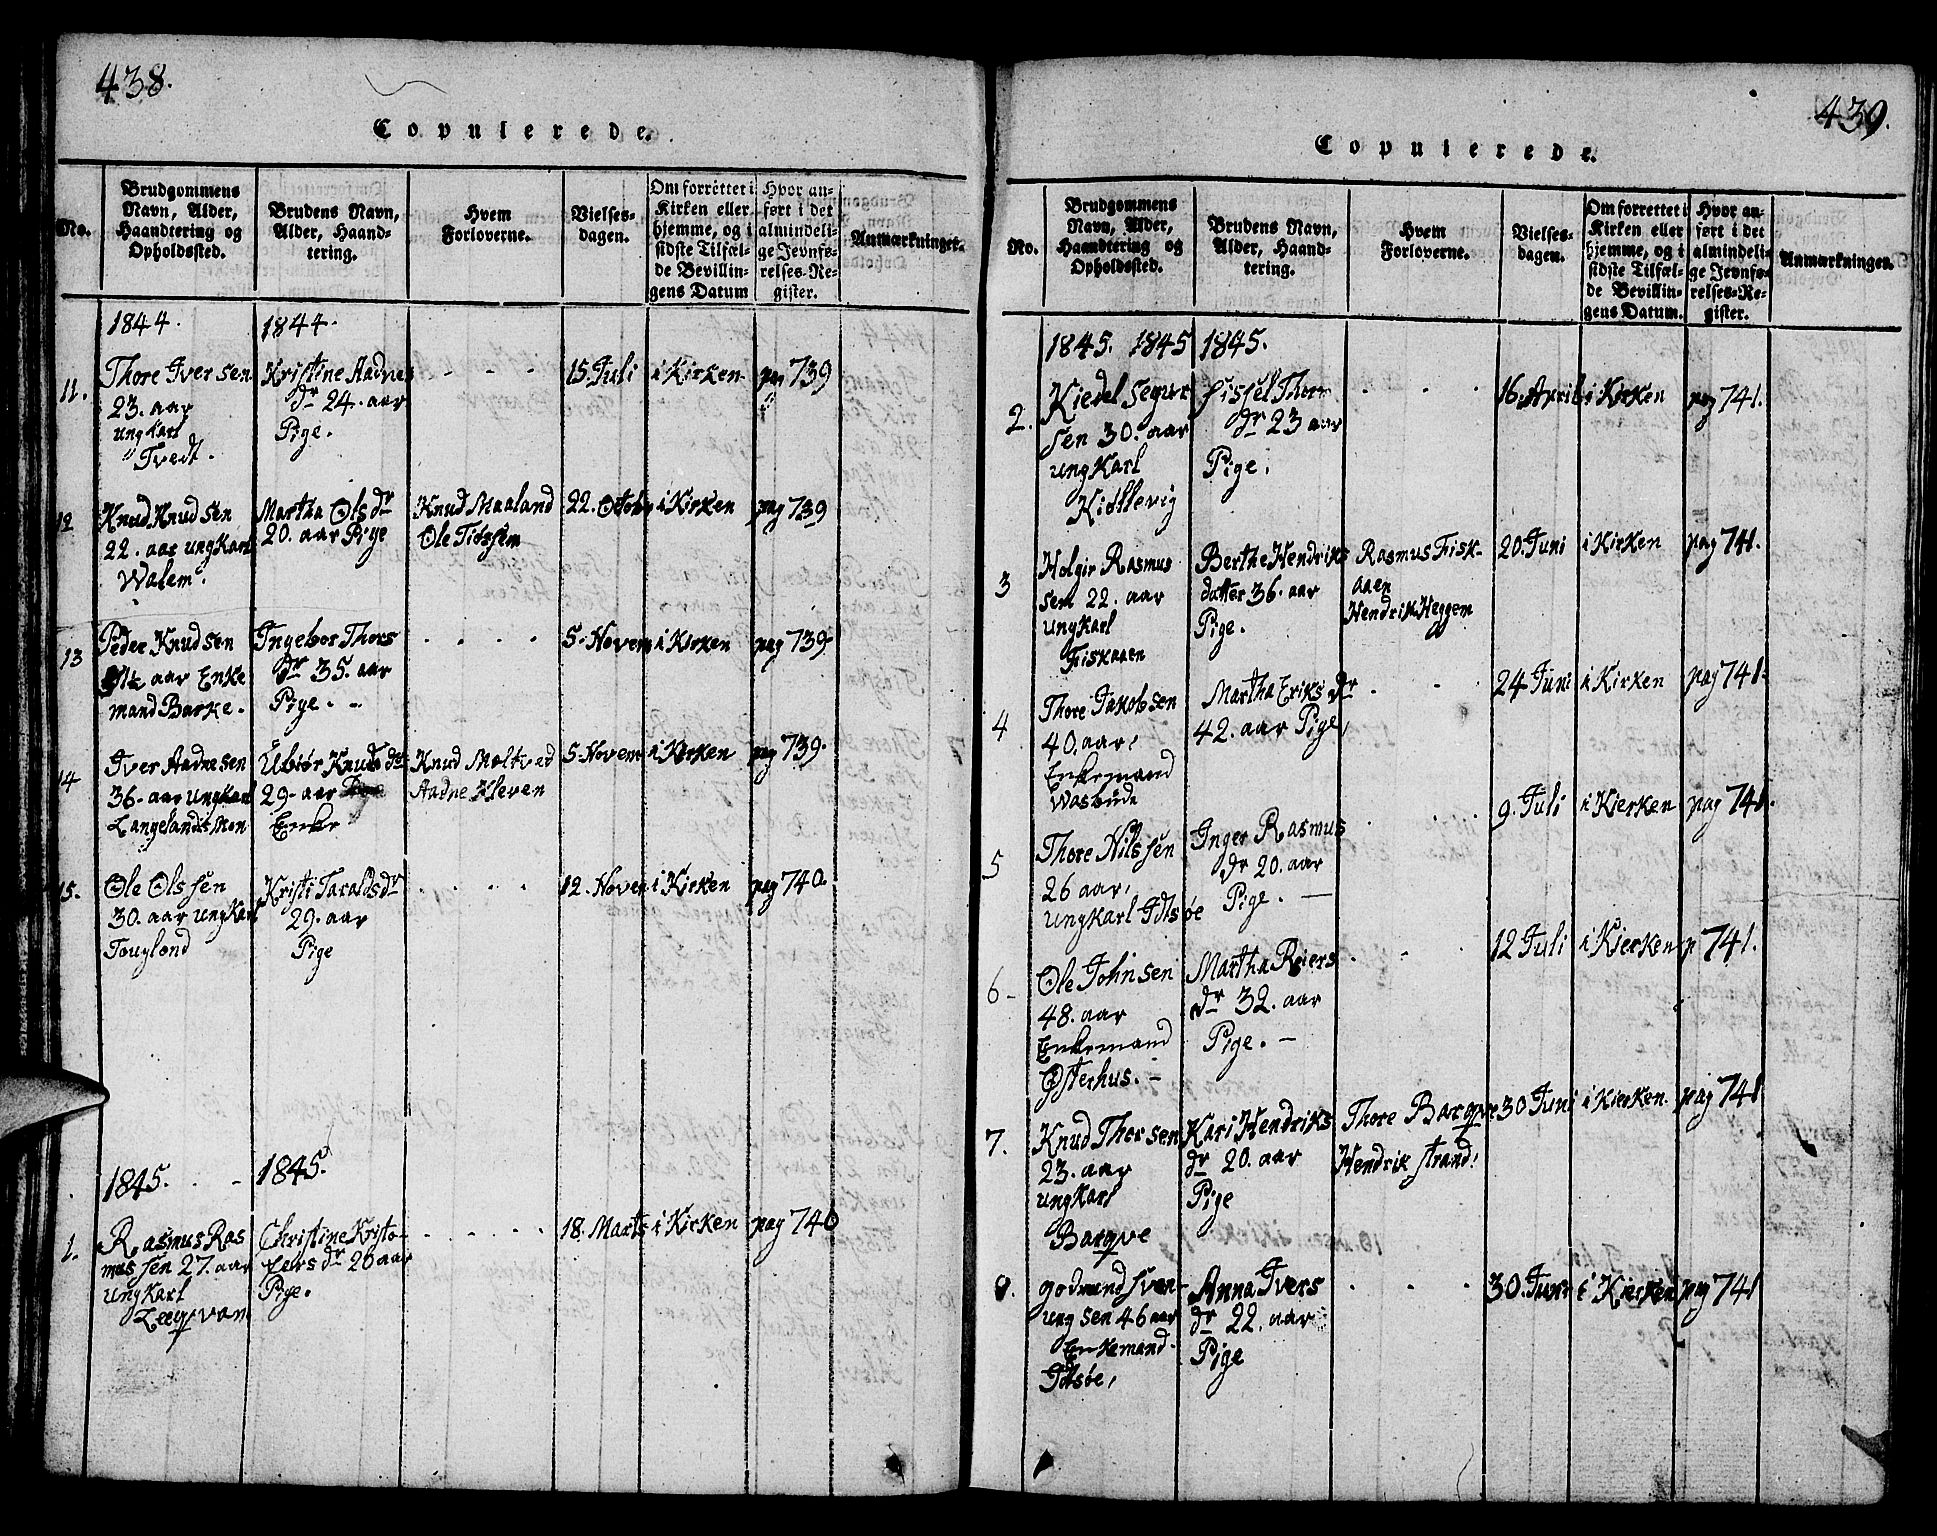 438.
Copulerede.
No.
Brudgommens Navn, Alder, Haandtering og Opholdssted.
Brudens Navn, Alder, Haandtering.
Hvem Forloverne.
Vielsesdagen.
Om forrettet i Kirken eller hjemme, og i sidste Tilfælde Bevillingens Datum
Hvor anført i det almindelige Jevnførelses-Register.
Anmærkninger.
1844. 1844.
11. Thore Iversen Kristine Aadnes - - - 15 Juli i Kirken pag 739
23. aar dr 24. aar
ungkarl Pige.
Tvedt.
12 Knud Knudsen Martha Olsdr Knud Maaland 22. Octob i Kirken pag 739
22. aar ungkarl 20. aar Pige Ole Tiøssem
Walem.
13 Peder Knudsen Ingebor Thors - - - - 5. Novem i Kirken pag 739
aar Enke dr 35. aar
mand Barke. Pige. -
14 Iver Aadnesen Ubiør Knudsdr Knud Moltved 5. Novem i Kirken pag 739.
36. aar ungkarl 29. aar Aadne Kleven
Langelandsmon Enke
15. Ole Olssen Kristi Taraldsdr - - - - 12. Novem i Kirken pag 740.
30. aar ungkarl 29. aar
Tougland Pige
1845. - 1845.
1. Rasmus Ras Christine Kristo- - - - - 18. Marts i Kirken pag 740
mussen 27. aar fersdr 26 aar
ungkarl Pige.
439.
Copulerede.
No.
Brudgommens Navn, Alder, Haandtering og Opholdssted.
Brudens Navn, Alder, Haandtering.
Hvem Forloverne.
Vielsesdagen.
Om forrettet i Kirken eller hjemme, og i sidste Tilfælde Bevillingens Datum.
Hvor anført i det almindelige Jevnførelses-Register.
Anmærkninger.
1845. 1845 1845.
2. Kiedel Segur Sissel Thors - - - 16. April i Kirken pag 741.
sen 30. aar dr 23 aar
ungkarl Pige.
Kidtlevig
3 Holgir Rasmus Berthe Hendriks Rasmus Fisk- 20. Juni i Kirken pag 741.
sen 22. aar datter 36. aar aaen
ungkarl Pige. Hendrik Heggem
Fiskaaen
4 Thore Jakobsen Martha Eriksdr - - 24 Juni i Kirken pag 741.
40. aar, 42. aar Pige
Enkemand
Wasbude
5 Thore Nilssen Inger Rasmus - - - 9. Juli i Kierken pag 741.
26 aar, dr 20. aar
ungkarl Idtsøe Pige. -
6- Ole Johnsen Martha Reiers - - - 12 Juli i Kierken p 741.
48. aar dr 32. aar
Enkemand Pige. -
Østerhus. -
7. Knud Thorsen Kari Hendriks Thore Barqve 30 Juni i Kierken pag 741
23. aar dr 20. aar Hendrik Strand
ungkarl Pige
Barqve
8. Godmund Sven- Anna Ivers - - - 30. Juni i Kierken pag 741
ungsen 46 aar dr 22. aar
Enkemand. Pige
Idtsøe,